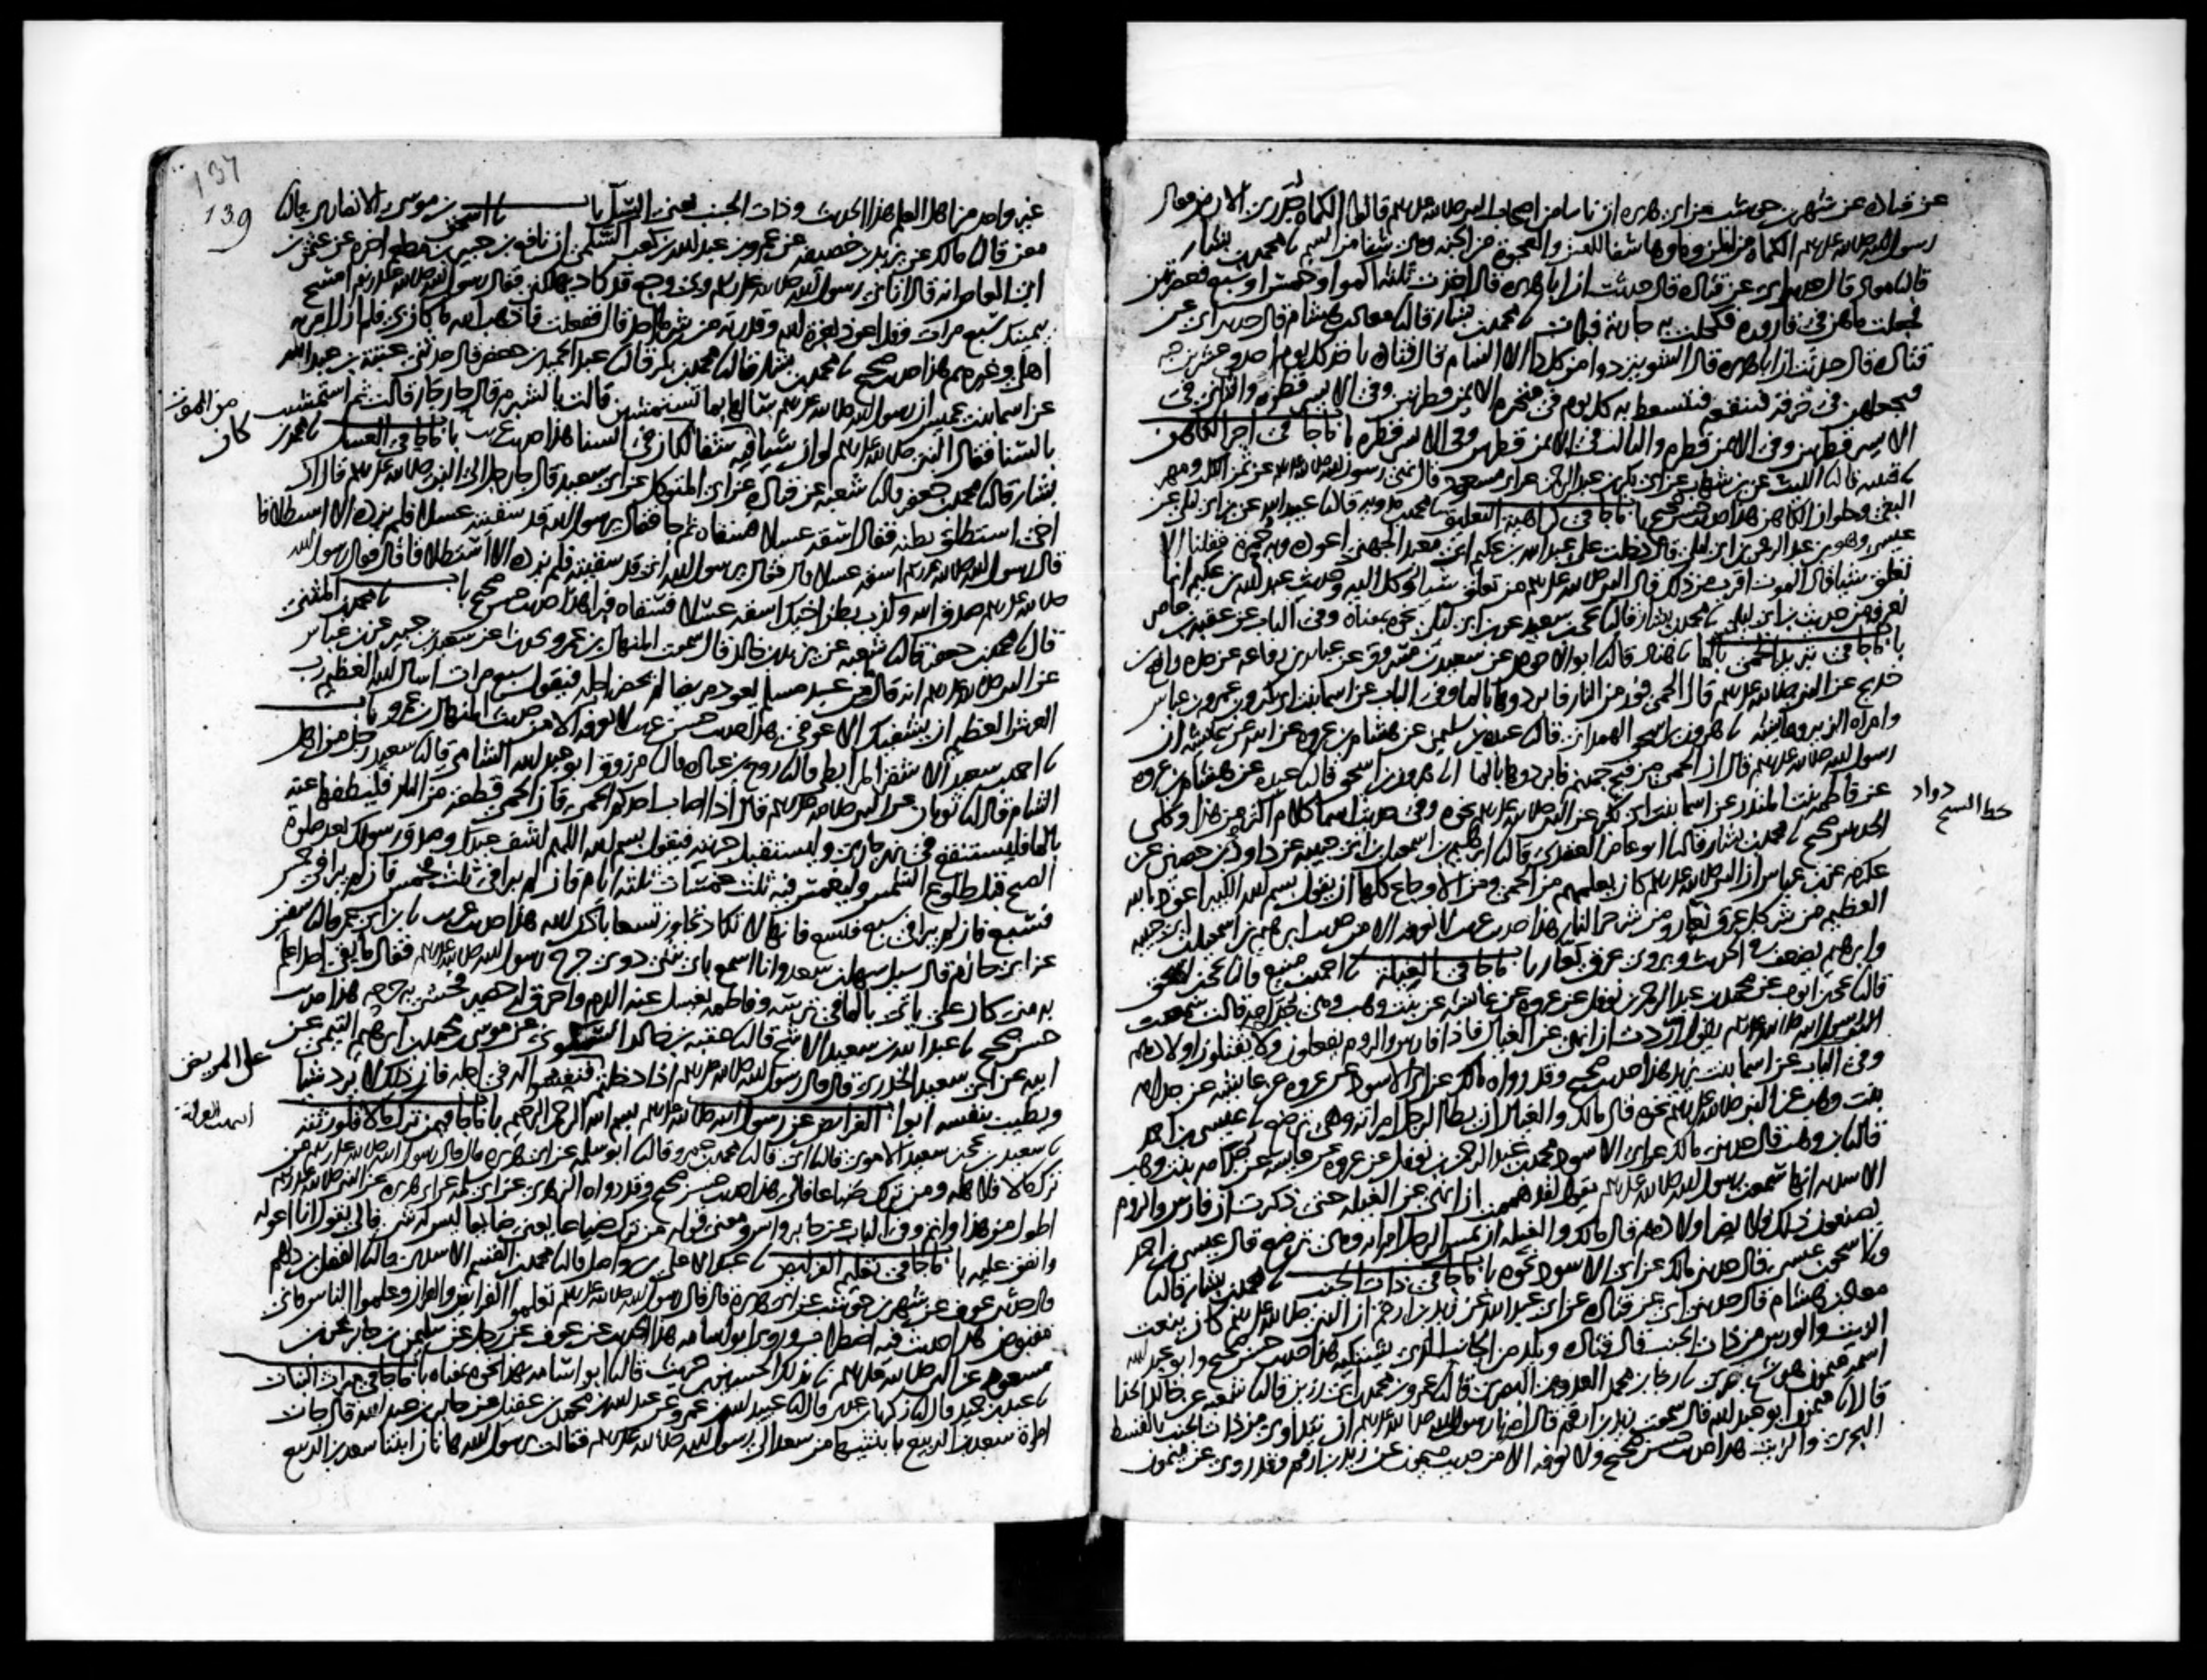 عن قتاده عن شهر بن حوشب عن ابي هريره ان ناسا من اصحاب النبي صلى الله عليه وسلم قالوا الكماه جدري الارض فقال
رسول الله صلى الله عليه وسلم الكماه من المن وماوها شفا للعين والعجوة من الجنه وهي شفا من السم نا محمد بن بشار
قال نا معاذ قال حدثني ابي عن قتاده قال حدثت ان ابا هريره قال اخذت ثلثه اكمو او خمسا او سبع فعصرتهن
فجعلت ماهن في قاروره فكحلت به جارية فبرات نا محمد بن بشار قال نا معاذ بن هشام قال حدثني ابي عن
قتاده قال حدثت ان ابا هريره قال الشونيز دوا من كل دا الا السام قال قتاده ياخذ كل يوم احدى وعشرين حبه
فيجعلهن في خرقه فينقعه فيتسعط به كل يوم في منخره الايمن قطرتين وفي الايسر قطرة والثاني في
الايسر قطرتين وفي الايمن قطره والثالث في الايمن قطرتين وفي الايسر قطره باب ما جا في اجر الكاهن
نا قتيبه قال نا الليث عن بن شهاب عن ابي بكر بن عبد الرحمن عن ابي مسعود قال نهى رسول الله صلى الله عليه وسلم عن ثمن الكلب ومهر
البغي وحلوان الكاهن هذا حديث حسن صحيح باب ما جا في كراهية التعليق نا محمد بن مدويه قال نا عبيد الله عن بن ابي ليلى عن
عيسى وهو بن عبد الرحمن بن ابي ليلى قال دخلت على عبد الله بن عكيم ابي معبد الجهني اعوده وبه حمرة فقلنا الا
تعلق شيا قال الموت اقرب من ذلك قال النبي صلى الله عليه وسلم من تعلق شيا وكل اليه وحديث عبد الله بن عكيم انما
نعرفه من حديث بن ابي ليلى نا محمد بن بشار قال نا يحيى بن سعيد عن بن ابي ليلى نحوه بمعناه وفي الباب عن عقبه بن عامر
باب ما جا في تبريد الحمى بالما نا هناد قال نا ابو الاحوص عن سعيد بن مسروق عن عبايه بن رفاعه عن جده رافع بن
خديج عن النبي صلى الله عليه وسلم قال الحمى فور من النار فابردوها بالما وفي الباب عن اسما بنت ابي بكر وبن عمر وبن عباس
وامراه الزبير وعايشه نا هرون بن اسحق الهمداني قال نا عبده بن سليمن عن هشام بن عروه عن ابيه عن عايشه ان
رسول الله صلى الله عليه وسلم قال ان الحمى من فيح جهنم فابردوها بالما نا هرون بن اسحق قال نا عبده عن هشام بن عروه
عن فاطمه بنت المنذر عن اسما بنت ابي بكر عن النبي صلى الله عليه وسلم نحوه وفي حديث اسما كلام اكثر من هذا وكلى
الحديثين صحيح نا محمد بن بشار قال نا ابو عامر العقدي قال نا ابرهيم بن اسمعيل بن ابي حبيبه عن داود بن حصين عن
عكرمه عن بن عباس ان النبي صلى الله عليه وسلم كان يعلمهم من الحمى ومن الاوجاع كلها ان يقول بسم الله الكبير اعوذ بالله
العظيم من شر كل عرق نعار ومن شر حر النار هذا حديث غريب لا نعرفه الا من حديث ابرهيم بن اسمعيل بن ابي حبيبه
وابرهيم يضعف في الحديث ويروى عرق يعار باب ما جا في الغيلة نا احمد بن منيع قال نا يحيى بن اسحق
قال نا يحيى بن ايوب عن محمد بن عبد الرحمن بن نوفل عن عروه عن عايشه عن بنت وهب وهي جدامه قالت سمعت
رسول الله صلى الله عليه وسلم يقول اردت ان انهى عن الغيال فاذا فارس والروم يفعلون ولا يقتلون اولادهم
وفي الباب عن اسما بنت يزيد هذا حديث صحيح وقد رواه مالك عن ابي الاسود عن عروه عن عايشه عن جدامه
بنت وهب عن النبي صلى الله عليه وسلم نحوه قال مالك والغيال ان يطا الرجل امراته وهي ترضع نا عيسى بن احمد
قال نا بن وهب قال حدثني مالك عن ابي الاسود محمد بن عبد الرحمن بن نوفل عن عروه عن عايشه عن جدامه بنت وهب
الاسديه انها سمعت رسول الله صلى الله عليه وسلم يقول لقد هممت ان انهى عن الغيله حتى ذكرت ان فارس والروم
يصنعون ذلك ولا يضر اولادهم قال مالك والغيله ان يمس الرجل امراته وهي ترضع قال عيسى بن احمد
ونا اسحق بن عيسى قال حدثني مالك عن ابي الاسود نحوه باب ما جا في ذات الجنب نا محمد بن بشار قال نا
معاذ بن هشام قال حدثني ابي عن قتاده عن ابي عبد الله عن زيد بن ارقم ان النبي صلى الله عليه وسلم كان ينعت
الزيت والورس من ذات الجنب قال قتاده ويلد من الجانب الذي يشتكيه هذا حديث حسن صحيح وابو عبد الله
اسمه ميمون هو شيخ بصري نا رجا بن محمد العدوي البصري قال نا عمرو بن محمد بن ابي رزين قال نا شعبه عن خالد الحذا
قال نا ميمون ابو عبد الله قال سمعت زيد بن ارقم قال امرنا رسول الله صلى الله عليه وسلم ان نتداوى من ذات الجنب بالقسط
البحري والزيت هذا حديث حسن صحيح ولا نعرفه الا من حديث ميمون عن زيد بن ارقم وقد روى عن ميمون
دواد
خط الشيخ
137
139
غير واحد من اهل العلم هذا الحديث وذات الجنب يعني السل باب نا اسحق بن موسى الانصاري قال نا
معن قال نا مالك عن يزيد بن خصيفه عن عمرو بن عبد الله بن كعب السلمي ان نافع بن جبير بن مطعم اخبره عن عثمن بن
ابي العاص انه قال اتاني رسول الله صلى الله عليه وسلم وبي وجع قد كاد يهلكني فقال رسول الله صلى الله عليه وسلم امسح
بيمينك سبع مرات وقل اعوذ بعزة الله وقدرته من شر ما اجد قال ففعلت فاذهب الله ما كان بي فلم ازل امر به
اهلي وغيرهم هذا حديث صحيح نا محمد بن بشار قال نا محمد بن بكر قال نا عبد الحميد بن جعفر قال حدثني عتبة بن عبد الله
عن اسما بنت عميس ان رسول الله صلى الله عليه وسلم سالها بما تستمشين قالت بالشبرم قال حار جار قالت ثم استمشيت
بالسنا فقال النبي صلى الله عليه وسلم لو ان شيا فيه شفا لكان في السنا هذا حديث غريب باب ما جا في العسل نا محمد بن
من الموت
كان
بشار قال نا محمد بن جعفر قال نا شعبه عن قتاده عن ابي المتوكل عن ابي سعيد قال جا رجل الى النبي صلى الله عليه وسلم قال ان
اخي استطلق بطنه فقال اسقه عسلا فسقاه ثم جا فقال يرسول الله قد سقيته عسلا فلم يزده الا استطلاقا
قال رسول الله صلى الله عليه وسلم اسقه عسلا قال فقال يرسول الله اني قد سقيته فلم يزده الا استطلاقا قال فقال رسول الله
صلى الله عليه وسلم صدق الله وكذب بطن اخيك اسقه عسلا فسقاه فبرا هذا حديث حسن صحيح باب نا محمد بن المثنى
قال نا محمد بن جعفر قال نا شعبه عن يزيد بن خالد قال سمعت المنهال بن عمرو يحدث عن سعيد بن جبير عن بن عباس
عن النبي صلى الله عليه وسلم انه قال ما من عبد مسلم يعود مريضا لم يحضر اجله فيقول سبع مرات اسال الله العظيم رب
العرش العظيم ان يشفيك الا عوفي هذا حديث حسن غريب لا نعرفه الا من حديث المنهال بن عمرو باب
نا احمد بن سعيد الاشقر المرابطي قال نا روح بن عباده قال نا مرزوق ابو عبد الله الشامي قال نا سعيد رجل من اهل
الشام قال نا ثوبان عن النبي صلى الله عليه وسلم قال اذا اصاب احدكم الحمى فان الحمى قطعه من النار فليطفها عنه
بالما فليستنقع في نهر جاري وليستقبل جريته فيقول بسم الله اللهم اشف عبدك وصدق رسولك بعد صلوة
الصبح قبل طلوع الشمس وليغمس فيه ثلث غمسات ثلثة ايام فان لم يبرا في ثلث فخمس فان لم يبرا في خمس
فسبع فان لم يبرا في سبع فتسع فانها لا تكاد تجاوز تسعا باذن الله هذا حديث غريب نا بن ابي عمر قال نا سفين
عن ابي حازم قال سيل سهل بن سعد وانا اسمع باي شي دوي جرح رسول الله صلى الله عليه وسلم فقال ما بقي احد اعلم
به مني كان علي ياتي بالما في ترسه وفاطمه تغسل عنه الدم واحرق له حصير فحشي به جرحه هذا حديث
حسن صحيح نا عبد الله بن سعيد الاشج قال نا عقبه بن خالد السكوني عن موسى بن محمد بن ابرهيم التيمي عن
ابيه عن ابي سعيد الخدري قال قال رسول الله صلى الله عليه وسلم اذا دخلتم فنفسوا له في اجله فان ذلك لا يرد شيا
على المريض
ويطيب بنفسه ابواب الفرايض عن رسول الله صلى الله عليه وسلم بسم الله الرحمن الرحيم باب ما جا فيمن ترك مالا فلورثته
نا سعيد بن يحيى بن سعيد الاموي قال نا ابي قال نا محمد بن عمرو قال نا ابو سلمه عن ابي هريره قال قال رسول الله صلى الله عليه وسلم من
ترك مالا فلاهله ومن ترك ضياعا فالي هذا حديث حسن صحيح وقد رواه الزهري عن ابي سلمه عن ابي هريره عن النبي صلى الله عليه وسلم
اطول من هذا واتم وفي الباب عن جابر وانس ومعنى قوله من ترك ضياعا يعني ضايعا ليس له شي فالي يقول انا اعوله
وانفق عليه باب ما جا في تعليم الفرايض نا عبد الاعلى بن واصل قال نا محمد بن القسم الاسدي قال نا الفضل بن دلهم
قال نا عوف عن شهر بن حوشب عن ابي هريره قال قال رسول الله صلى الله عليه وسلم تعلموا الفرايض والقران وعلموا الناس فاني
مقبوض هذا حديث فيه اضطراب وروى ابو اسامه هذا الحديث عن عوف عن رجل عن سليمن بن جابر عن بن
مسعود عن النبي صلى الله عليه وسلم نا بذلك الحسين بن حريث قال نا ابو اسامه بهذا نحوه بمعناه باب ما جا في ميراث البنات
نا عبد بن حميد قال نا زكريا بن عدي قال نا عبيد الله بن عمرو عن عبد الله بن محمد بن عقيل عن جابر بن عبد الله قال جات
امراة سعد بن الربيع بابنتيها من سعد الى رسول الله صلى الله عليه وسلم فقالت يرسول الله هاتان ابنتا سعد بن الربيع